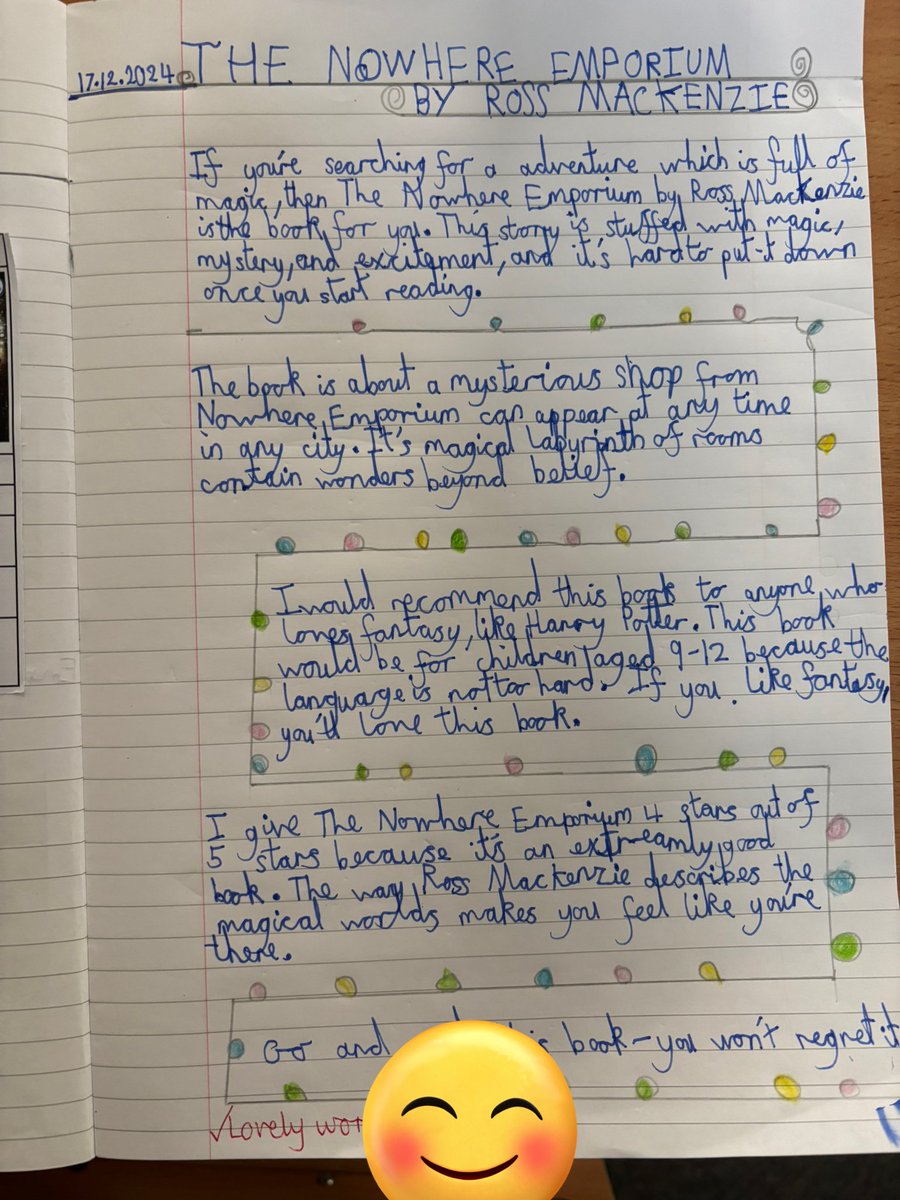 17.12.2024 THE NOWHERE EMPORIUM
BY ROSS MACKENZIE
If you're searching for a adventure which is full of
magic, then The Nowhere Emporium by Ross Mackenzie
is the book for you. This storry is stuffed with magic,
mystery, and excitement, and it's hard to put it down
once you start reading.
The book is about a mysterious shop from
Nowhere Emporium can appear at any time
in any city. It's magical labyrinth of rooms
contain wonders beyond belief.
I would recommend this book to anyone who
loves fantasy, like Harry Potter. This book
would be for children aged 9-12 because the
language is not too hard. If you like fantasy,
you'll love this book.
I give The Nowhere Emporium 4 stars out of
5 stars because it's an extreamly good
book. The way Ross Mackenzie describes the
magical worlds makes you feel like you're
there.
Go and book - you won't regret it
Lovely